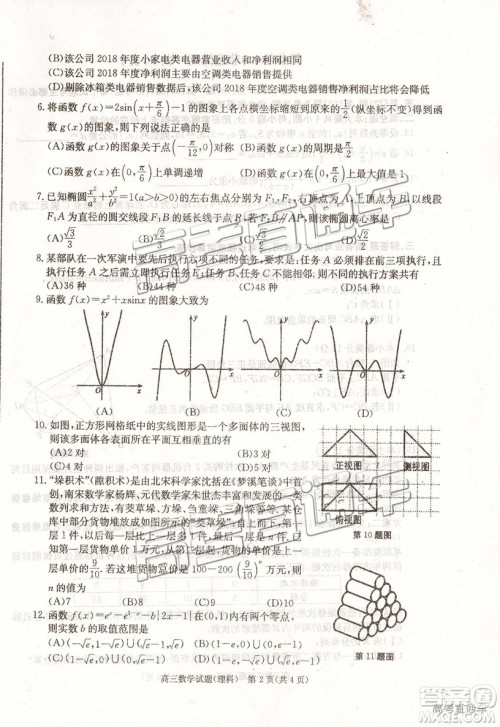 (B)该公司2018年度小家电类电器营业收入和净利润相同
(C)该公司2018年度净利润主要由空调类电器销售提供
(D)剔除冰箱类电器销售数据后,该公司2018年度空调类电器销售净利润占比将会降低
6. 将函数 f(x)=2sin(x+π/6)-1的图象上各点横坐标缩短到原来的1/2(纵坐标不变)得到函
数 g(x)的图象,则下列说法正确的是
(A)函数 g(x)的图象关于点(-π/12,0)对称 (B)函数 g(x)的周期是π/2
(C)函数 g(x)在(0,π/6)上单调递增 (D)函数 g(x)在(0,π/6)上最大值是1
7. 已知椭圆x²/a²+y²/b²=1(a>b>0)的左右焦点分别为F₁,F₂,右顶点为A,上顶点为B,以线
段F₁A为直径的圆交线段F₁B的延长线于点P,若F₂B∥AP,则该椭圆离心率是
(A)√3/3 (B)√2/3 (C)√3/2 (D)√2/2
8. 某部队在一次军演中要先后执行六项不同的任务,要求是:任务A必须排在前三项执行,且
执行任务A之后需立即执行任务E,任务B、任务C不能相邻,则不同的执行方案共有
(A)36种 (B)44种 (C)48种 (D)54种
9. 函数 f(x)=x²+xsinx的图象大致为
y x O
y x O
y x O
y x O
(A) (B) (C) (D)
10. 如图,正方形网格纸中的实线图形是一个多面体的三视图,
则该多面体各表面所在平面互相垂直的有
(A)2对 (B)3对
(C)4对 (D)5对
正视图 侧视图
俯视图
第10题图
11. "垛积术"(隙积术)是由北宋科学家沈括在《梦溪笔谈》中首
创,南宋数学家杨辉、元代数学家朱世杰丰富和发展的一
类数列求和方法,有茭草垛、方垛、刍童垛、三角垛等等,某仓
库中部分货物堆放成如图所示的"茭草垛":自上而下,第一
层1件,以后每一层比上一层多1件,最后一层是n件.已
知第一层货物单价1万元,从第二层起,货物的单价是上一
层单价的9/10.若这堆货物总价是100-200(9/10)ⁿ万元,则
n的值为
(A)7 (B)8 (C)9 (D)10
第11题图
12. 函数 f(x)=eˣ⁻¹-e⁻ˣ⁺¹-b|2x-1|在(0,1)内有两个零点,
则实数b的取值范围是
(A)(-√e,1-e)∪(e-1,√e) (B)(1-e,0)∪(0,e-1)
(C)(1-√e,0)∪(0,√e-1) (D)(1-e,-√e)∪(√e,e-1)
高三数学试题(理科) 第2页(共4页)
高考直通车
高考直通车